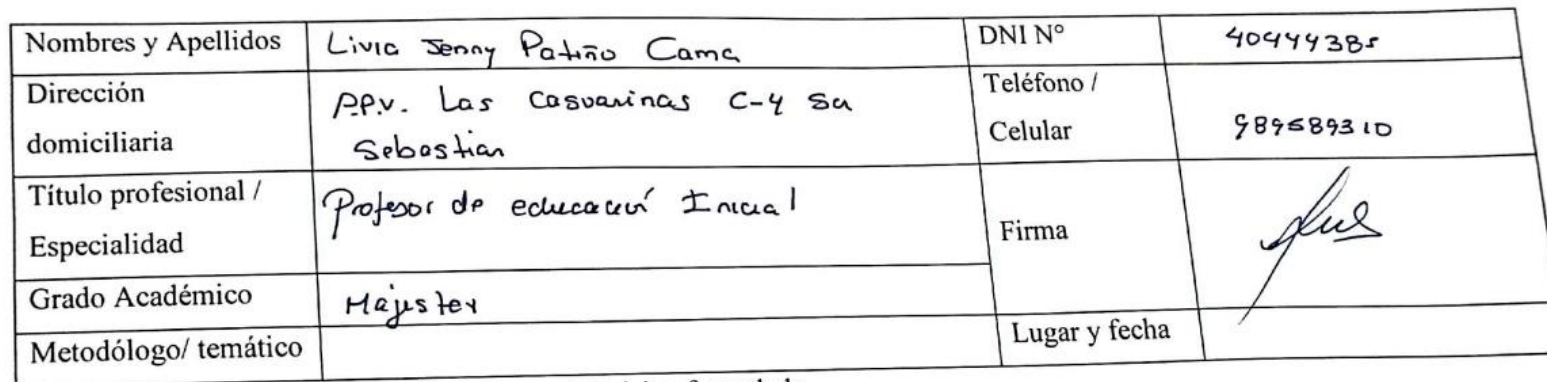 Nombres y Apellidos Livia Jenny Patiño Cama DNI N° 40444385
Dirección domiciliaria P.P.V. Las Casuarinas C-4 Sn Sebastian Teléfono / Celular 989589310
Título profesional / Especialidad Profesor de educación Inicial Firma
Grado Académico Majister
Metodólogo/ temático Lugar y fecha